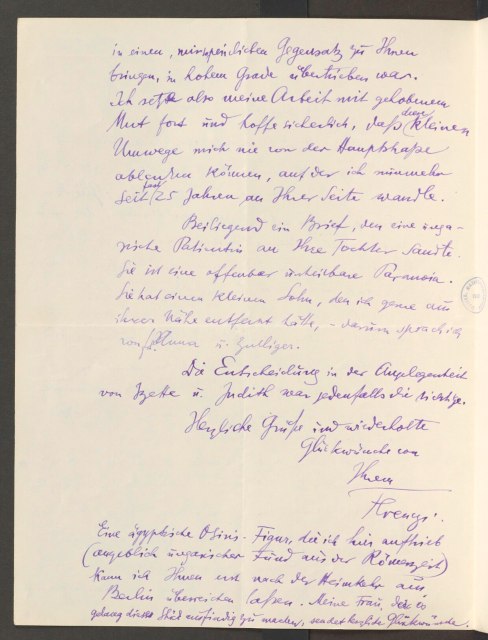 in einen, mir peinlichen Gegensatz zu Ihnen
bringen, in hohem Grade übertrieben war.
Ich setze also meine Arbeit mit gehobenem
Mut fort und hoffe sicherlich, daß diese kleinen
Umwege mich nie von der Hauptstraße
ablenken können, auf der ich nunmehr
seit fast 25 Jahren an Ihrer Seite wandle.
Beiliegend ein Brief, den eine unga-
rische Patientin an Ihre Tochter sandte.
Sie ist eine offenbar unheilbare Paranoia.
Sie hat einen kleinen Sohn, den ich gerne aus
ihrer Nähe entfernt hätte, – darum sprach ich
von Anna u. Zulliger.
Die Entscheidung in der Angelegenheit
von u. Judith war jedenfalls die richtige.
Herzliche Grüße und wiederholte
Glückwünsche von
Ihrem
Ferenczi.
Eine ägyptische Osiris-Figur, die ich hier auftrieb
(angeblich ungarischer Fund aus der Römerzeit)
kann ich Ihnen erst nach der Heimkehr aus
Berlin überreichen laßen. Meine Frau, der es
gelang dieses Stück ausfindig zu machen, sendet herzliche Glückwünsche.